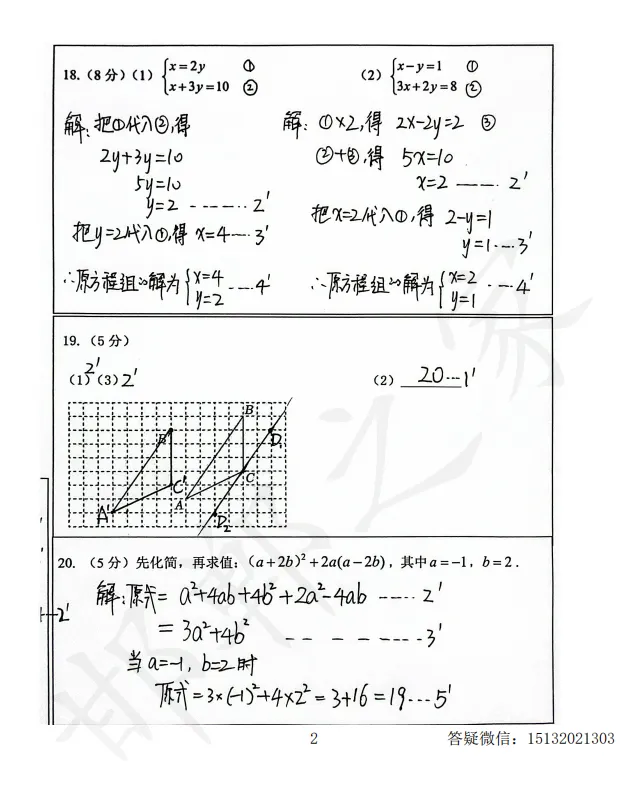 18.（8分）（1）{x=2y ①
x+3y=10 ②
解：把①代入②,得
2y+3y=10
5y=10
y=2 ------- 2'
把y=2代入①,得 x=4---- 3'
∴原方程组的解为{x=4
y=2 ---- 4'
（2）{x-y=1 ①
3x+2y=8 ②
解：①×2,得 2x-2y=2 ③
②+③,得 5x=10
x=2 ---- 2'
把x=2代入①,得 2-y=1
y=1---- 3'
∴原方程组的解为{x=2
y=1 ---- 4'
19.（5分）
（1）2'（3）2'
（2）20---1'
B' B D₁
C' C
A' A
D₂
20.（5分）先化简，再求值：(a+2b)²+2a(a-2b)，其中a=-1，b=2．
解：原式= a²+4ab+4b²+2a²-4ab ----- 2'
= 3a²+4b² --------- 3'
当a=-1, b=2时
原式=3×(-1)²+4×2²=3+16=19---5'
2'
邯郸之家
2
答疑微信：15132021303